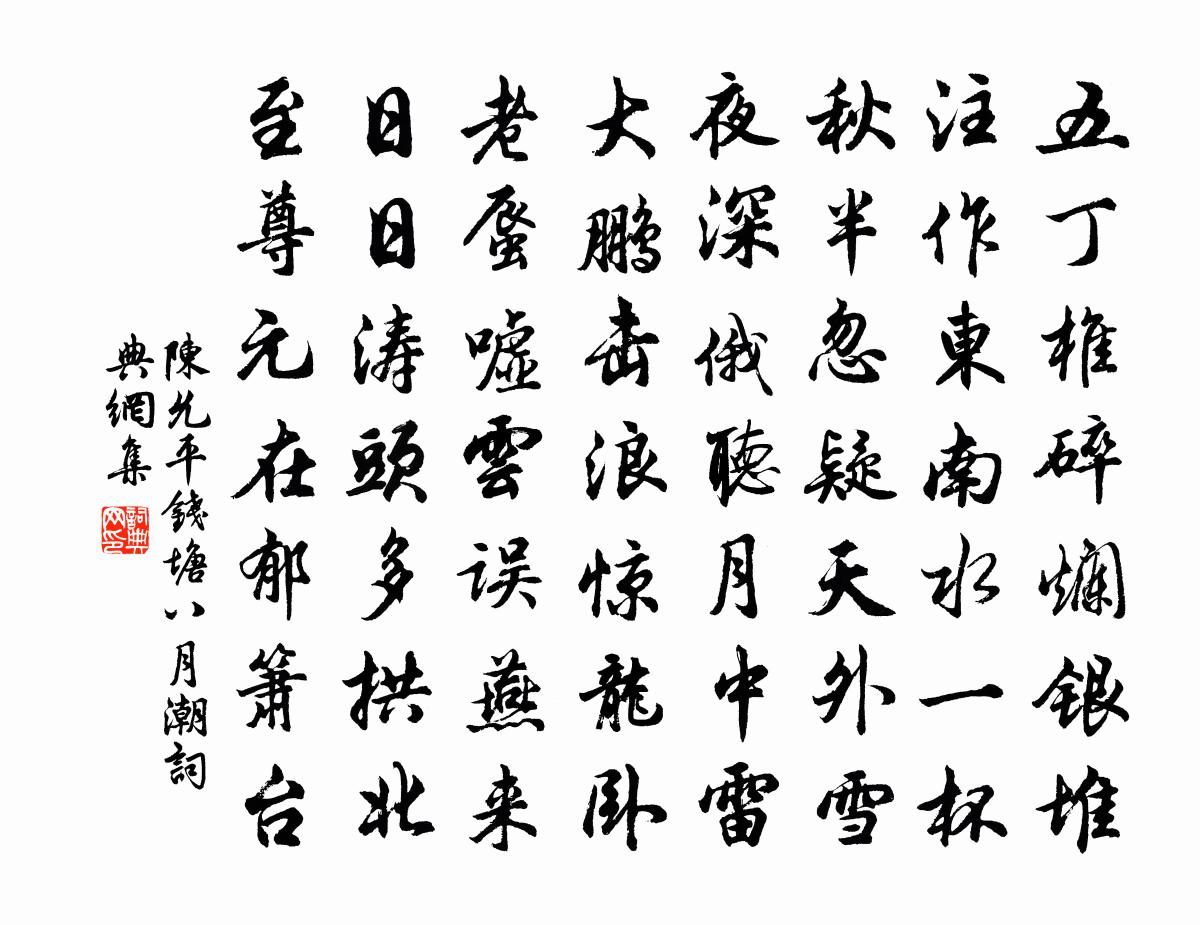 五丁椎碎爛銀堆
注作東南水一杯
秋半忽疑天外雪
夜深俄聽月中雷
大鵬击浪惊龍卧
老蜃嘘雲误燕来
日日涛頭多拱北
至尊元在郁簫台
陳允平錢塘八月潮詞
典網集
詞典网印